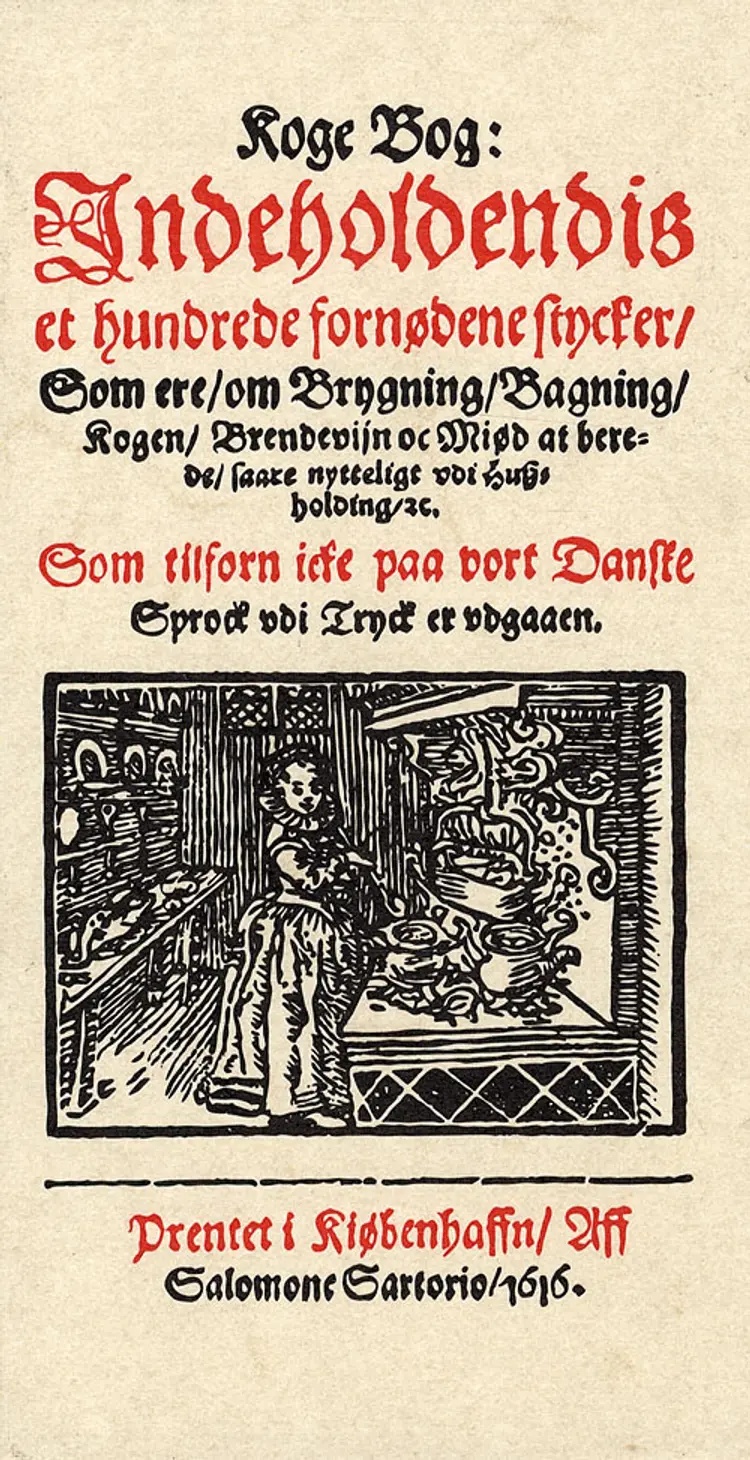 Koge Bog:
Indeholdendis
et hundrede fornødene stycker/
Som ere/om Brygning/Bagning/
Kogen/ Brendevijn oc Miød at bere=
de/ saare nytteligt vdi Husz=
holding/ꝛc.
Som tilforn icke paa vort Danske
Sprock vdi Tryck er vdgaaen.
Prentet i Kiøbenhaffn/ Aff
Salomone Sartorio/1616.